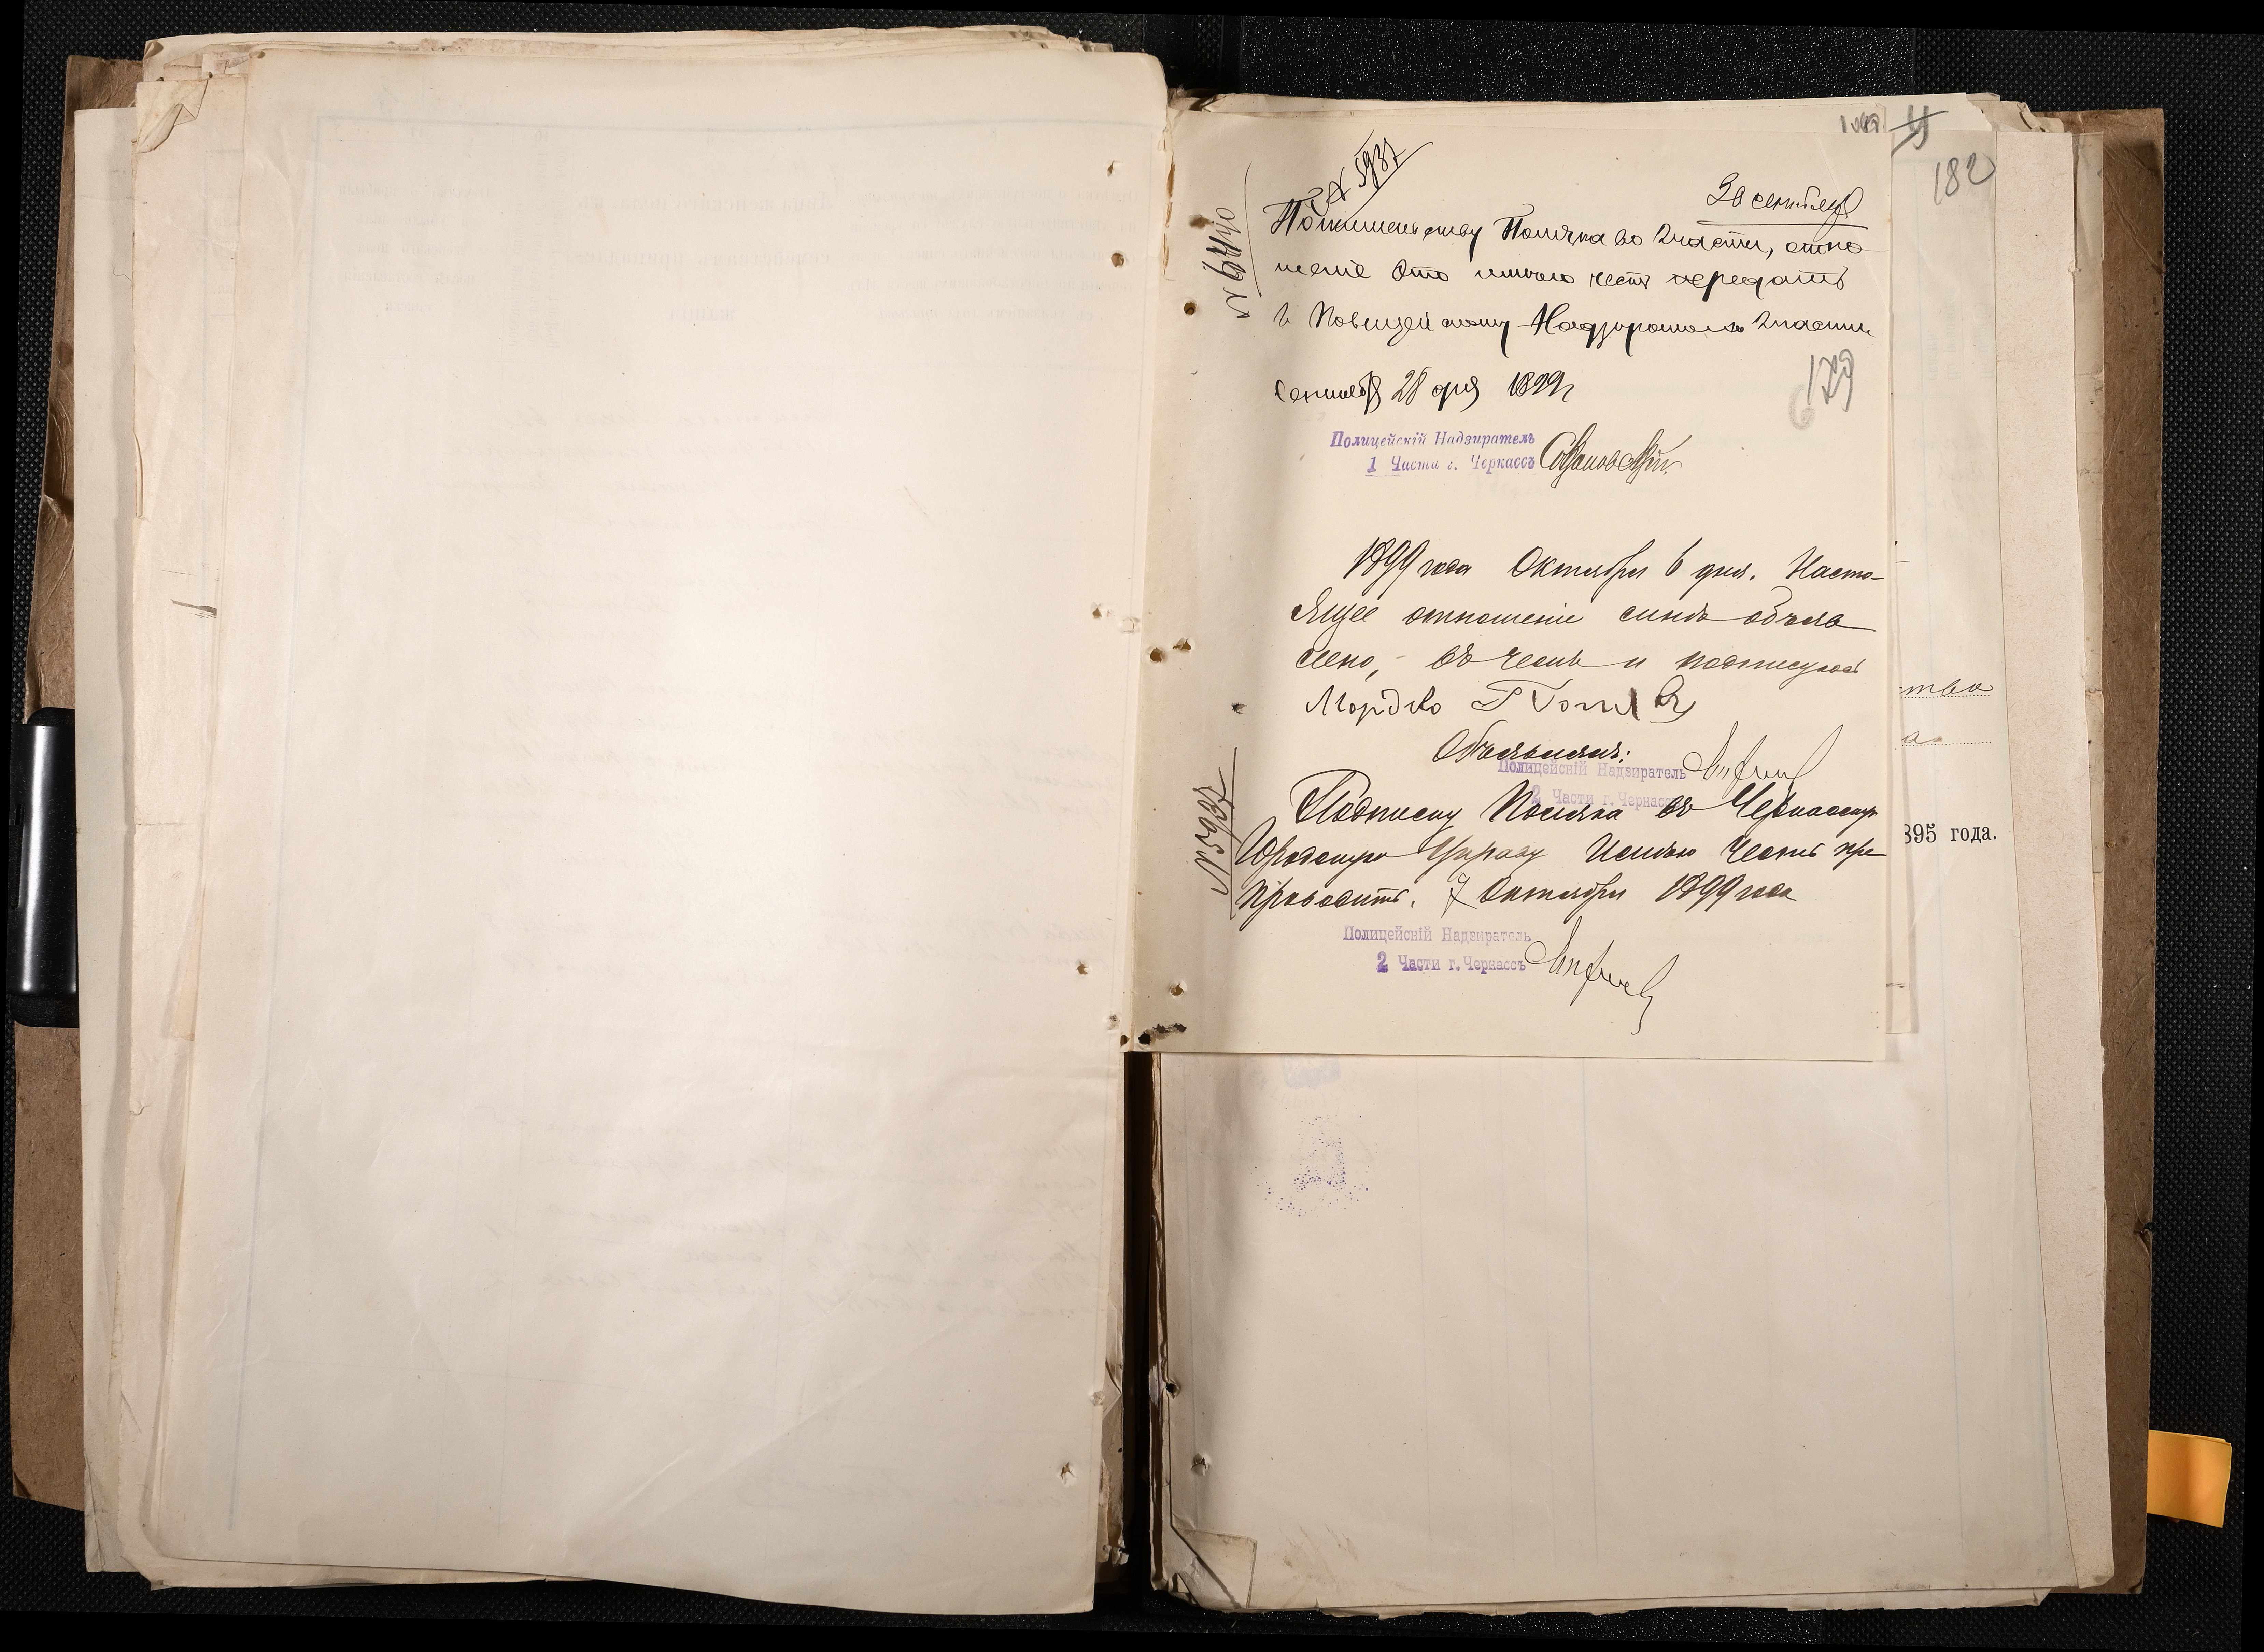 182
№ 5937
30 сентября
№ 6449
По жительству Поляка во 2 части, отно
шеніе это имѣю честь передать
г. Полицейскому Надзирателю 2 части
Сентября 28 дня 1899 г.
179
Полицейскій Надзиратель
1 Части г. Черкассъ
1899 года Октября 6 дня. Насто-
ящее отношеніе мнѣ объяв
лено, въ чемъ и подписуюсь
Мордко Поляк
Объявилъ:
Полицейскій Надзиратель
2 Части г. Черкассъ
№ 5937
Подписку Поляка въ Черкасскую
Городскую Управу Имѣю честь пре
проводить. 7 Октября 1899 года
Полицейскій Надзиратель
2 Части г. Черкассъ
ства
а
895 года.